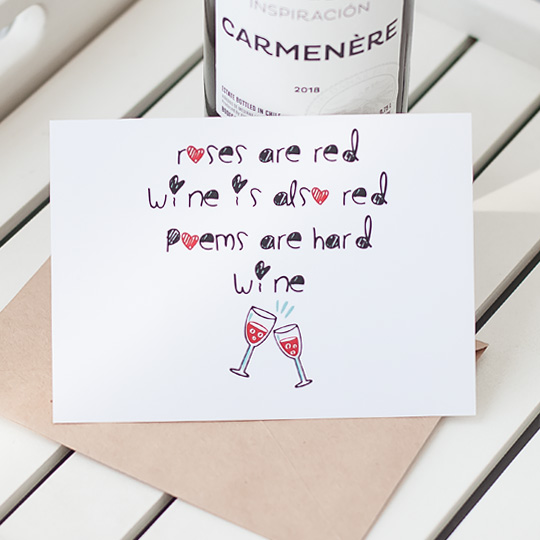 INSPIRACIÓN
CARMENÈRE
2018
ESTATE BOTTLED IN CHILE
roses are red
wine is also red
poems are hard
wine